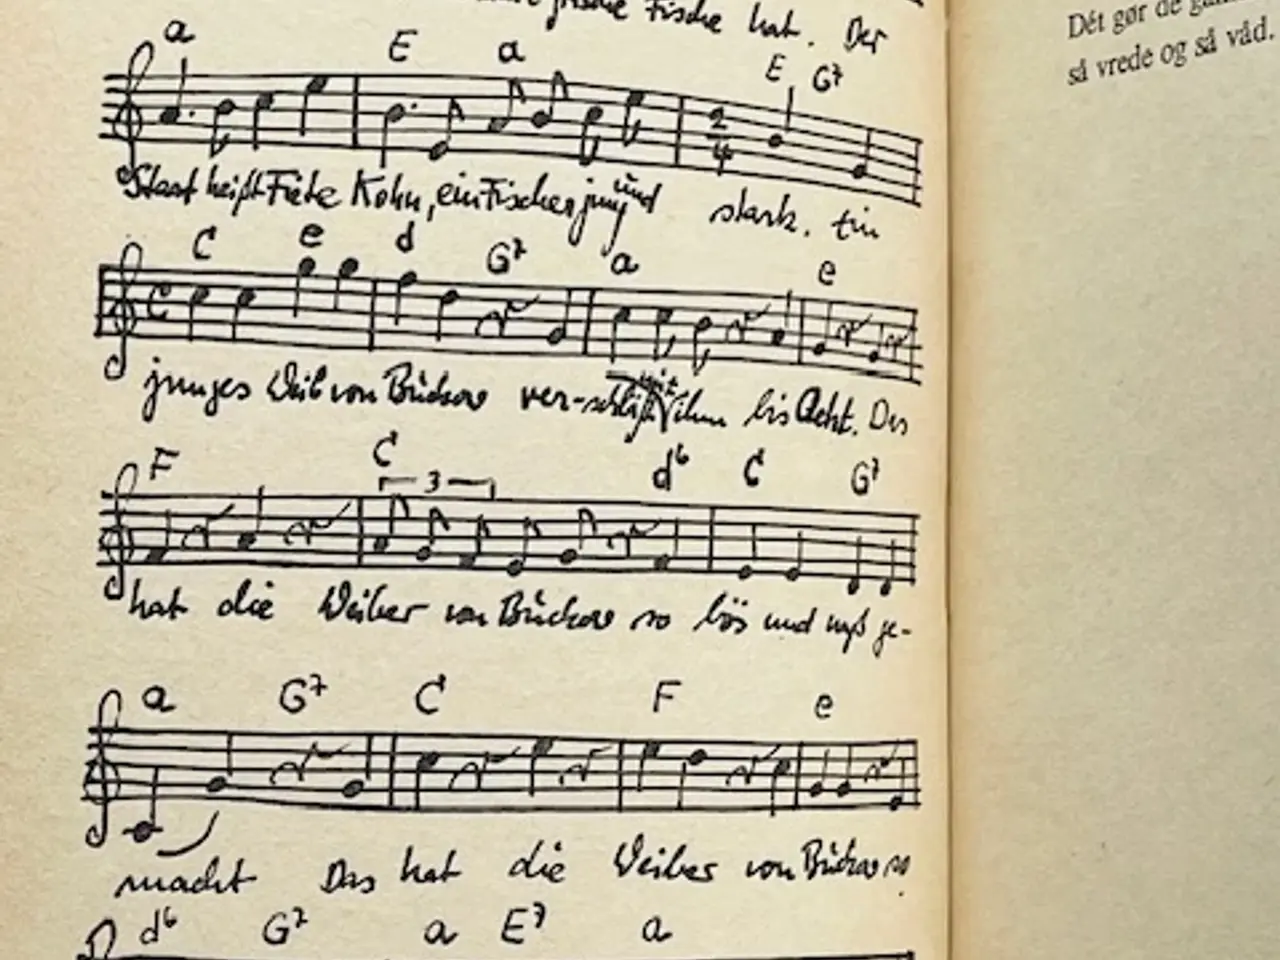 frische Fische hat. Der
a E a E G7
2
4
Staat heißt Fiete Kohn, ein Fischer jung und stark. Ein
C e d G7 a e
junges Weib von Bückow ver-schläft mit ihm bis Acht. Das
F C 3 d6 C G7
hat die Weiber von Bückow so bös und naß ge-
a G7 C F e
macht Das hat die Weiber von Bückow so
d6 G7 a E7 a
Dét gør de
så vrede og så våd.